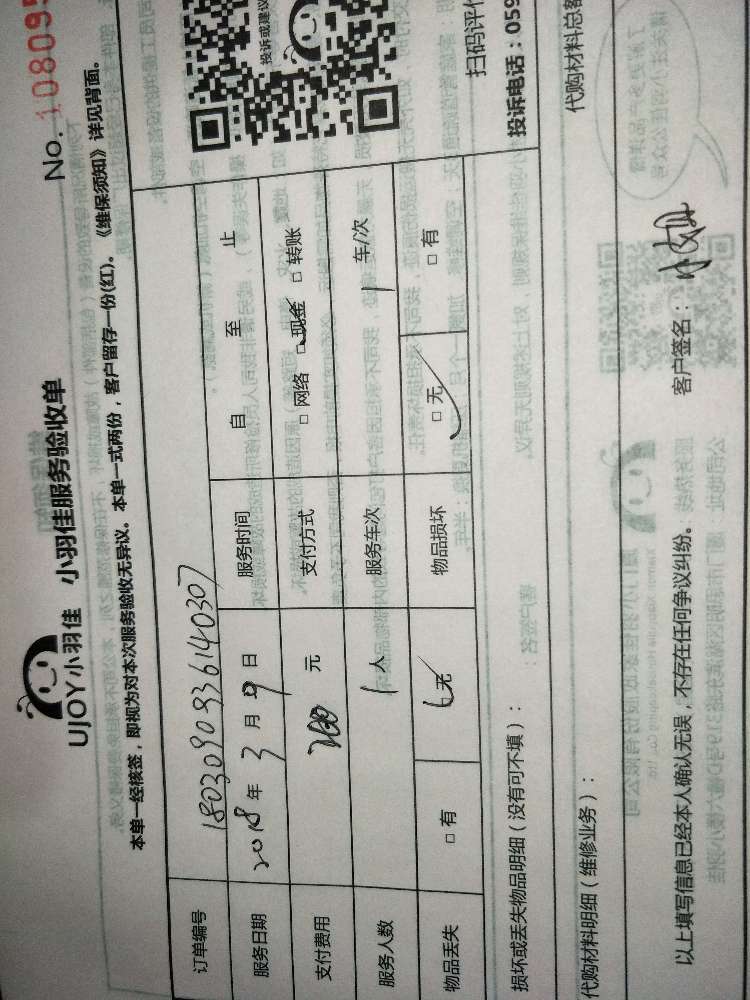 No. 108095
UJOY小羽佳 小羽佳服务验收单
本单一经核签，即视为对本次服务验收无异议。本单一式两份，客户留存一份(红)。《维保须知》详见背面。
订单编号 180309093614030７
服务日期 2018年3月9日 服务时间 自 至 止
支付费用 200元 支付方式 □网络 □现金 □转账
服务人数 1人 服务车次 1车/次
物品丢失 □有 □无 物品损坏 □无 □有
损坏或丢失物品明细（没有可不填）：
代购材料明细（维修业务）： 代购材料总
以上填写信息已经本人确认无误，不存在任何争议纠纷。 客户签名：
投诉或建议
扫码评
投诉电话：059